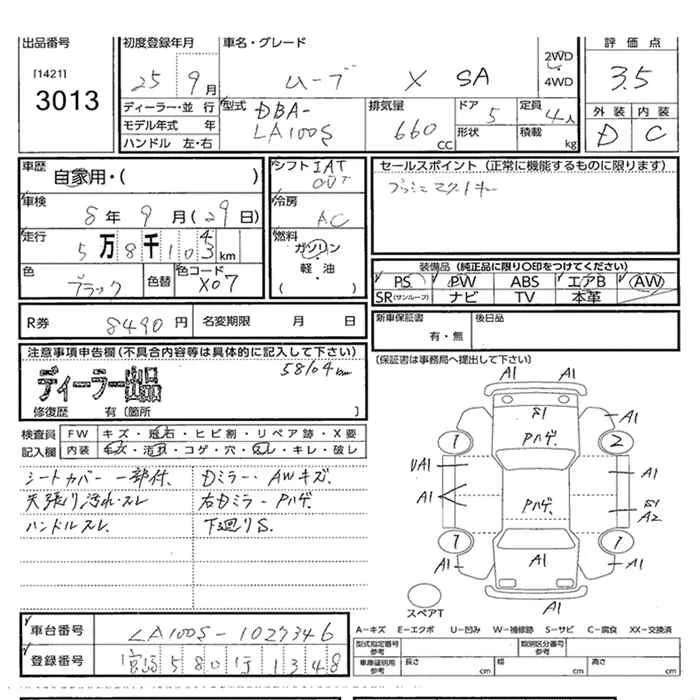 出品番号
[1421]
3013
初度登録年月
25 9月
車名・グレード
ムーブ X SA
2WD
4WD
評価点
3.5
外装 内装
D C
ディーラー・並 行
モデル年式 年
ハンドル 左・右
型式
DBA-
LA100S
排気量
660 CC
ドア 5
形状
定員 4人
積載 kg
車歴
自家用・( )
車検
8年 9月(29日)
走行
5万8千10 km
色
ブラック
色替
色コード
X07
シフト IAT
冷房
AC
燃料
ガソリン
・
軽・油
( )
セールスポイント (正常に機能するものに限ります)
装備品 (純正品に限り○印をつけてください)
PS PW ABS エアB AW
SR(サンルーフ) ナビ TV 本革
R券 8490円
名変期限 月 日
新車保証書
有・無
後日品
(保証書は事務局へ提出して下さい)
注意事項申告欄(不具合内容等は具体的に記入して下さい)
58104km
ディーラー出品
修復歴 有〔箇所 〕
検査員 FW キズ・飛石・ヒビ割・リペア跡・X要
記入欄 内装 キズ・汚れ・コゲ・穴・スレ・キレ・破レ
シートカバー 一部付、 Dミラー・AWキズ、
天張り汚れ・スレ 右Dミラー Pハゲ、
ハンドルスレ、 下廻りS、
A1
A1 A1
Pハゲ、
1 2
UA1 A1
A1
Pハゲ、
A2
1 1
A1 A1 A1
A1
スペアT
A−キズ E−エクボ U−凹み W−補修跡 S−サビ C−腐食 XX−交換済
車台番号 LA100S-1027346
登録番号 宮崎 580 1348
型式指定番号 参考
類別区分番号 参考
車庫証明用 参考
長さ cm
幅 cm
高さ cm